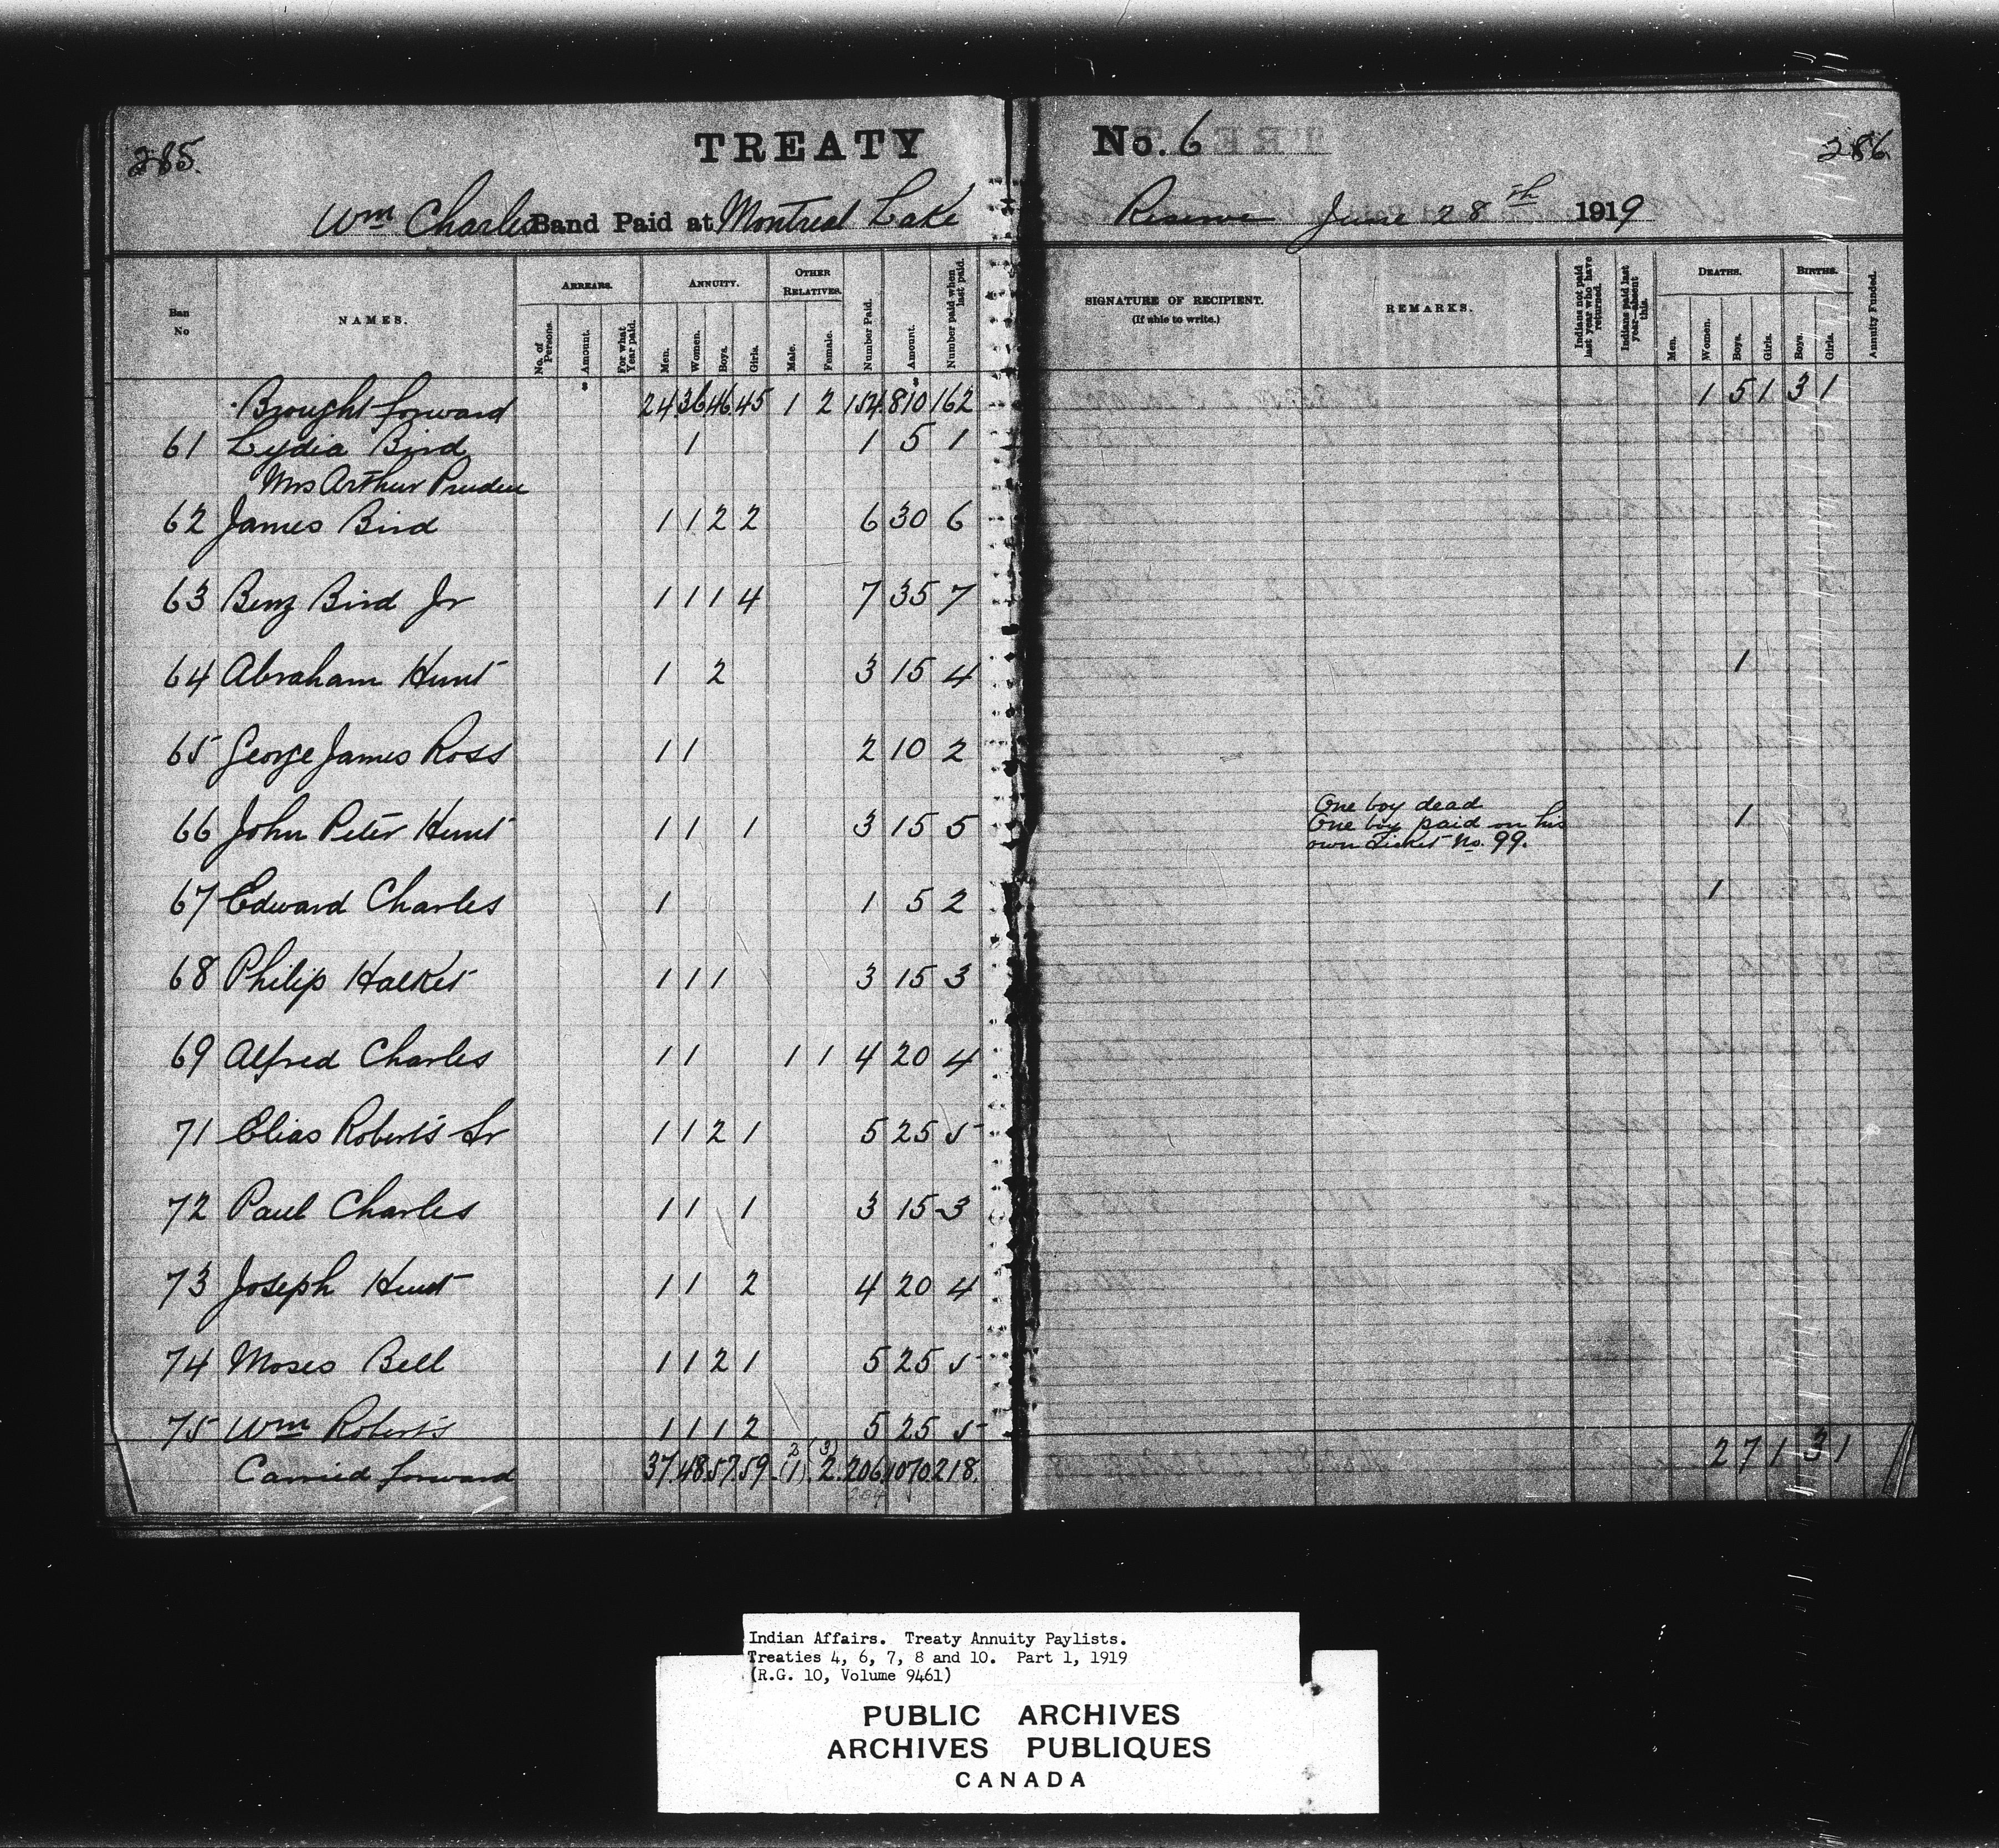 285.
TREATY No. 6
286
Wm Charles Band Paid at Montreal Lake Reserve June 28th 1919
Ban No
NAMES.
ARREARS.
No. of Persons.
Amount.
For what Year paid.
ANNUITY.
Men.
Women.
Boys.
Girls.
OTHER RELATIVES.
Male.
Female.
Number Paid.
Amount.
Number paid when last paid.
SIGNATURE OF RECIPIENT.
(If able to write.)
REMARKS.
Indians not paid last year who have returned.
Indians paid last year—absent this.
DEATHS.
Men.
Women.
Boys.
Girls.
BIRTHS.
Boys.
Girls.
Annuity Funded.
Brought forward 24 36 46 45 1 2 154 810 162 1 5 1 3 1
61 Lydia Bird 1 1 5 1
Mrs Arthur Pruden
62 James Bird 1 1 2 2 6 30 6
63 Benj Bird Jr 1 1 1 4 7 35 7
64 Abraham Hunt 1 2 3 15 4 1
65 George James Ross 1 1 2 10 2
66 John Peter Hunt 1 1 1 3 15 5 1
One boy dead
One boy paid on his
own Ticket No. 99.
67 Edward Charles 1 1 5 2 1
68 Philip Halket 1 1 1 3 15 3
69 Alfred Charles 1 1 1 1 4 20 4
71 Elias Roberts Sr 1 1 2 1 5 25 5
72 Paul Charles 1 1 1 3 15 3
73 Joseph Hunt 1 1 2 4 20 4
74 Moses Bell 1 1 2 1 5 25 5
75 Wm Roberts 1 1 1 2 5 25 5
2 (3)
Carried forward 37 48 57 59 (1) 2 206 1070 218. 2 7 1 3 1
Indian Affairs. Treaty Annuity Paylists.
Treaties 4, 6, 7, 8 and 10. Part 1, 1919
(R.G. 10, Volume 9461)
PUBLIC ARCHIVES
ARCHIVES PUBLIQUES
CANADA